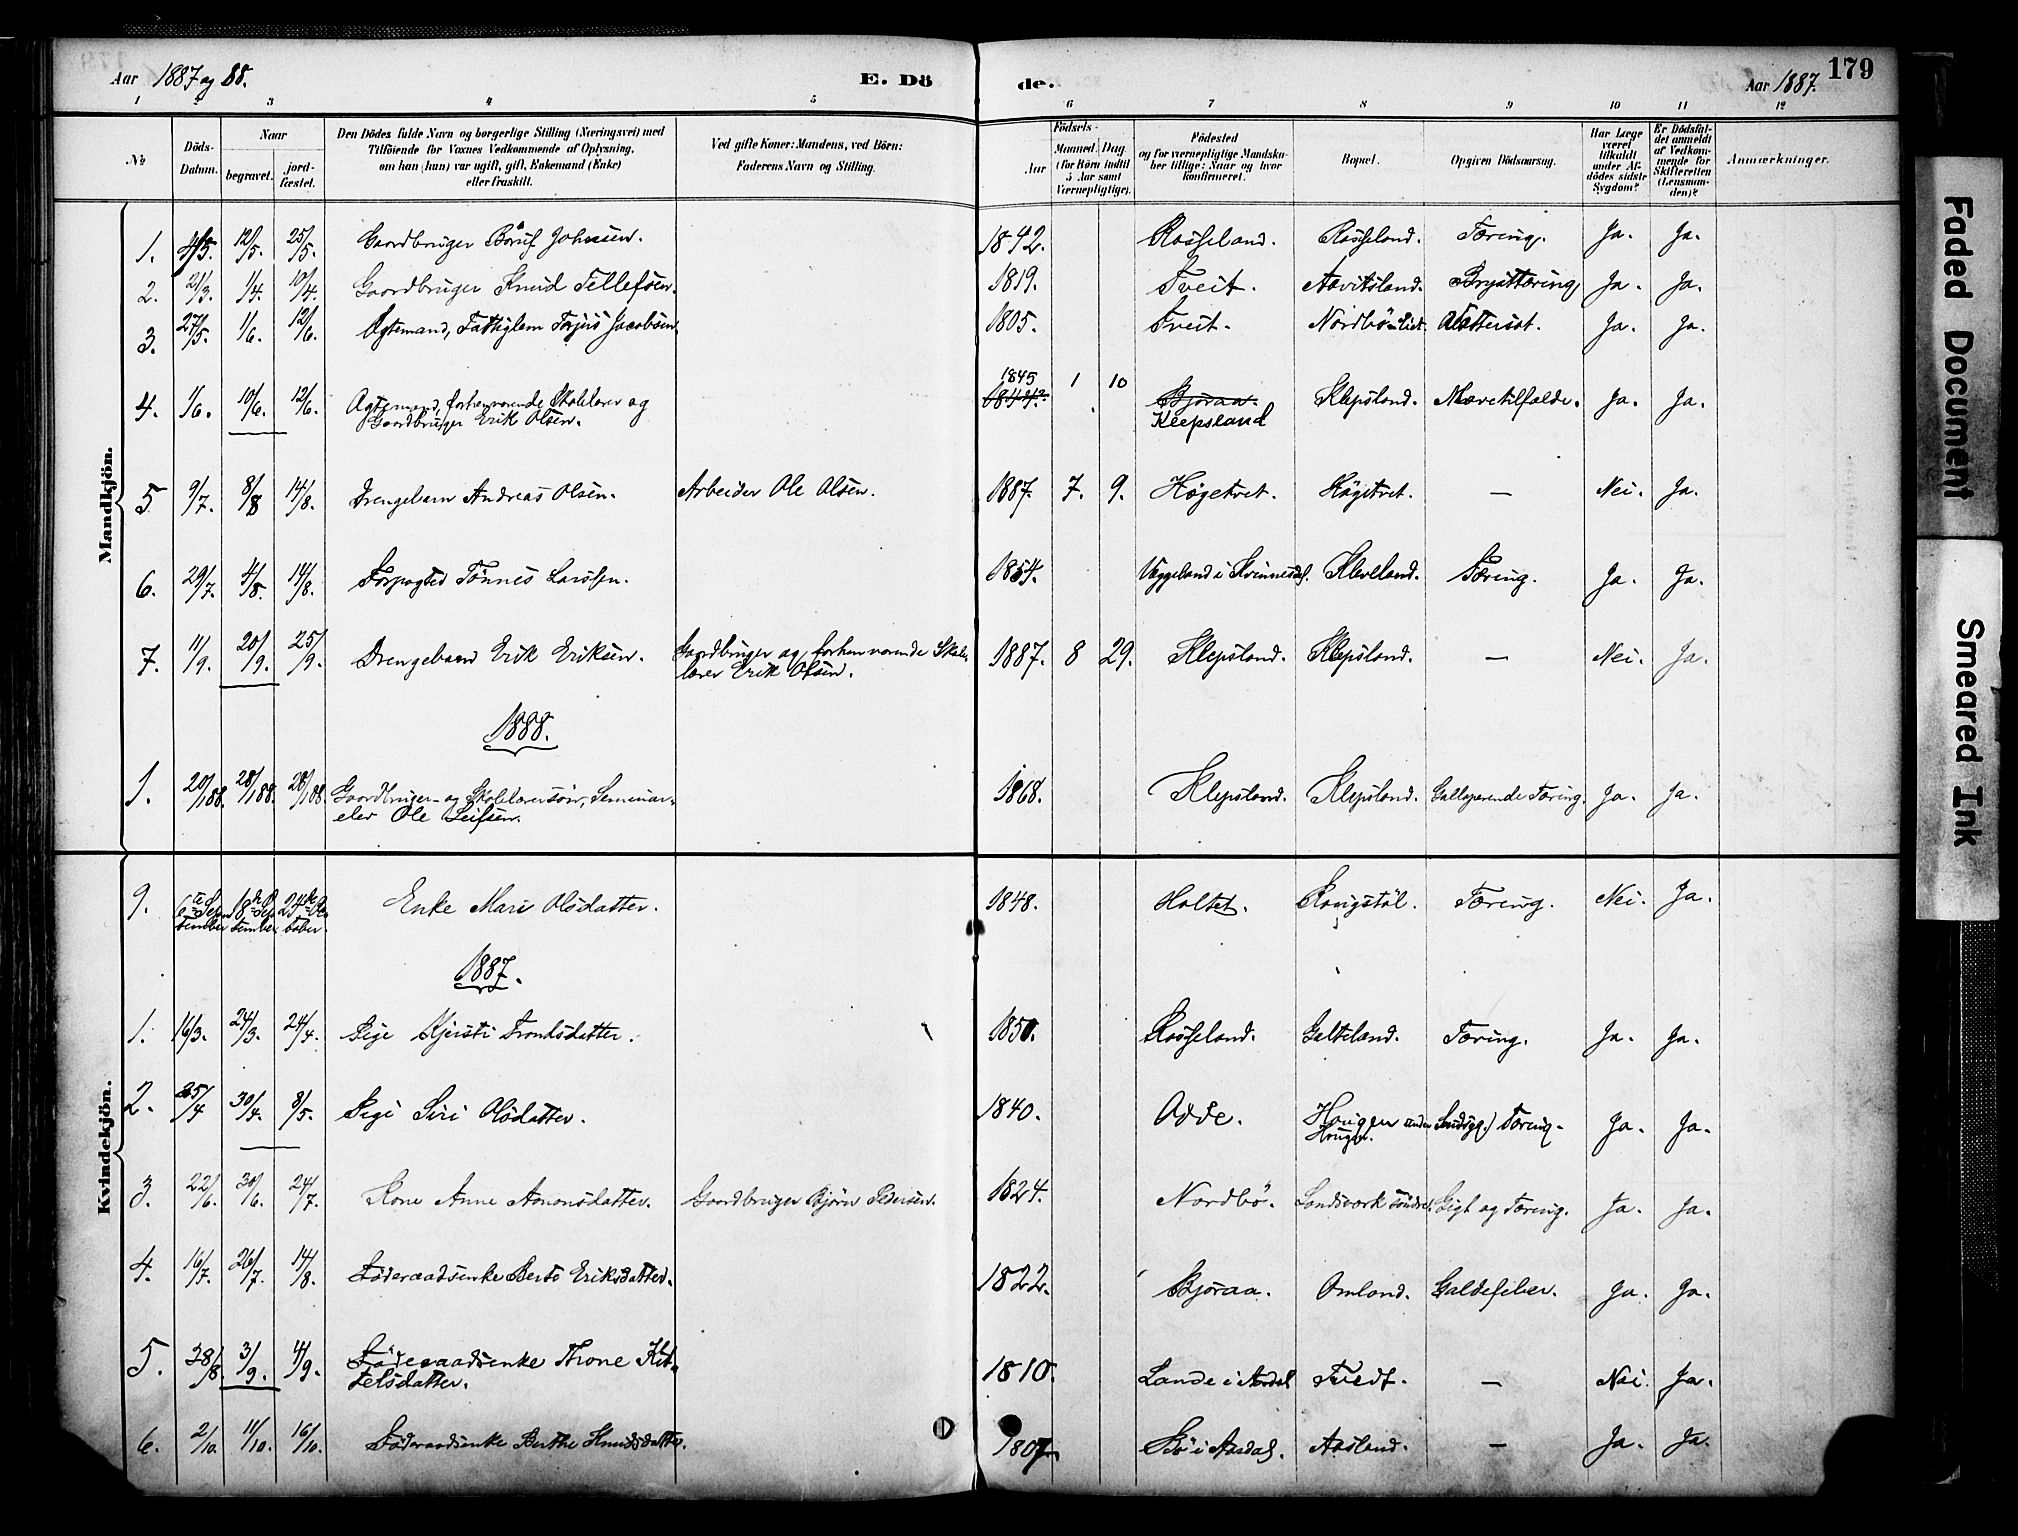 Aar 1887 og 88. E. Dö de. Aar 1887. 179
1 2 3 4 5 6 7 8 9 10 11 12
No. Döds-Datum. Naar begravet. jord-fæstet. Den Dödes fulde Navn og borgerlige Stilling (Næringsvei) med Tilföiende for Voxnes Vedkommende af Oplysning, om han (hun) var ugift, gift, Enkemand (Enke) eller fraskilt. Ved gifte Koner: Mandens, ved Börn: Faderens Navn og Stilling. Födsels- Aar Maaned. Dag (for Börn indtil 5 Aar samt Værnepligtige). Födested og for værnepligtige Mandskaber tillige: Naar og hvor konfirmeret. Bopæl. Opgiven Dödsaarsag. Har Læge været tilkaldt under Afdödes sidste Sygdom? Er Dödsfaldet anmeldt af Vedkommende for Skifteretten (Lensmanden)? Anmærkninger.
Mandkjön.
1. 4/5. 12/5. 25/5. Gaardbruger Böruf Johnsen. 1842. Rosseland. Rosseland. Tæring. Ja. Ja.
2. 21/3. 1/4. 10/4. Gaardbruger Knud Tellefsen. 1819. Tveit. Aavitsland. Brysttæring. Ja. Ja.
3. 27/5. 1/6. 12/6. Ægtemand, Fattiglem Terjus Jacobsen. 1805. Tveit. Ja. Ja.
4. 1/6. 10/6. 12/6. Ægtemand, forhenværende Skolelærer og Gaardbruger Erik Olsen. 1845 1844. 1 10 Bjoraa. Klepsland Klepsland. Nervetilfælde. Ja. Ja.
5 9/7. 8/8 14/8. Drengebarn Andreas Olsen. Arbeider Ole Olsen. 1887. 7. 9. Høgetvet. Høgetvet. — Nei. Ja.
6. 29/7. 4/8. 14/8. Forpagter Tønnes Larssen. 1854. Væggeland i Kvinnesdal. Kleveland. Tæring. Ja. Ja.
7. 11/9. 20/9. 25/9. Drengebarn Erik Eriksen. Gaardbruger og forhenværende Skolelærer Erik Olsen. 1887. 8 29. Klepsland. Klepsland. — Nei. Ja.
1888.
1. 20/1 88. 28/1 88. 28/1 88. Gaardbruger- og Skolelærersön, Seminarelev Ole Leifsen. 1868. Klepsland. Klepsland. Galloperende Tæring. Ja. Ja.
Kvindekjön.
9. 6te September 18de September 24de Oktober. Enke Mari Olsdatter. 1848. Holtet. Kongstöl. Tæring. Nei. Ja.
1887.
1. 16/3. 24/3. 24/4. Pige Kjersti Trondsdatter. 1850. Rosseland. Galteland. Tæring. Ja. Ja.
2. 25/4 30/4. 8/5. Pige Siri Olsdatter. 1840. Odde. Hougen under Hougen. Tæring. Ja. Ja.
3. 22/6. 30/6. 24/7. Kone Anne Amonsdatter. Gaardbruger Bjørn Pedersen. 1824. Nordbö. Landsverk søndre. Gigt og Tæring. Ja. Ja.
4. 16/7. 26/7. 14/8. Föderaadsenke Berte Eriksdatter. 1822. Bjoraa. Omland. Galdefeber. Ja. Ja.
5. 28/8. 3/9. 4/9. Föderaadsenke Thone Kittelsdatter. 1810. Lande i Aardal Tvedt. — Nei. Ja.
6. 2/10. 11/10. 16/10. Föderaadsenke Berthe Knudsdatter. 1807. Bö i Aardal. Aasland. — Ja. Ja.
Faded Document
Smeared Ink